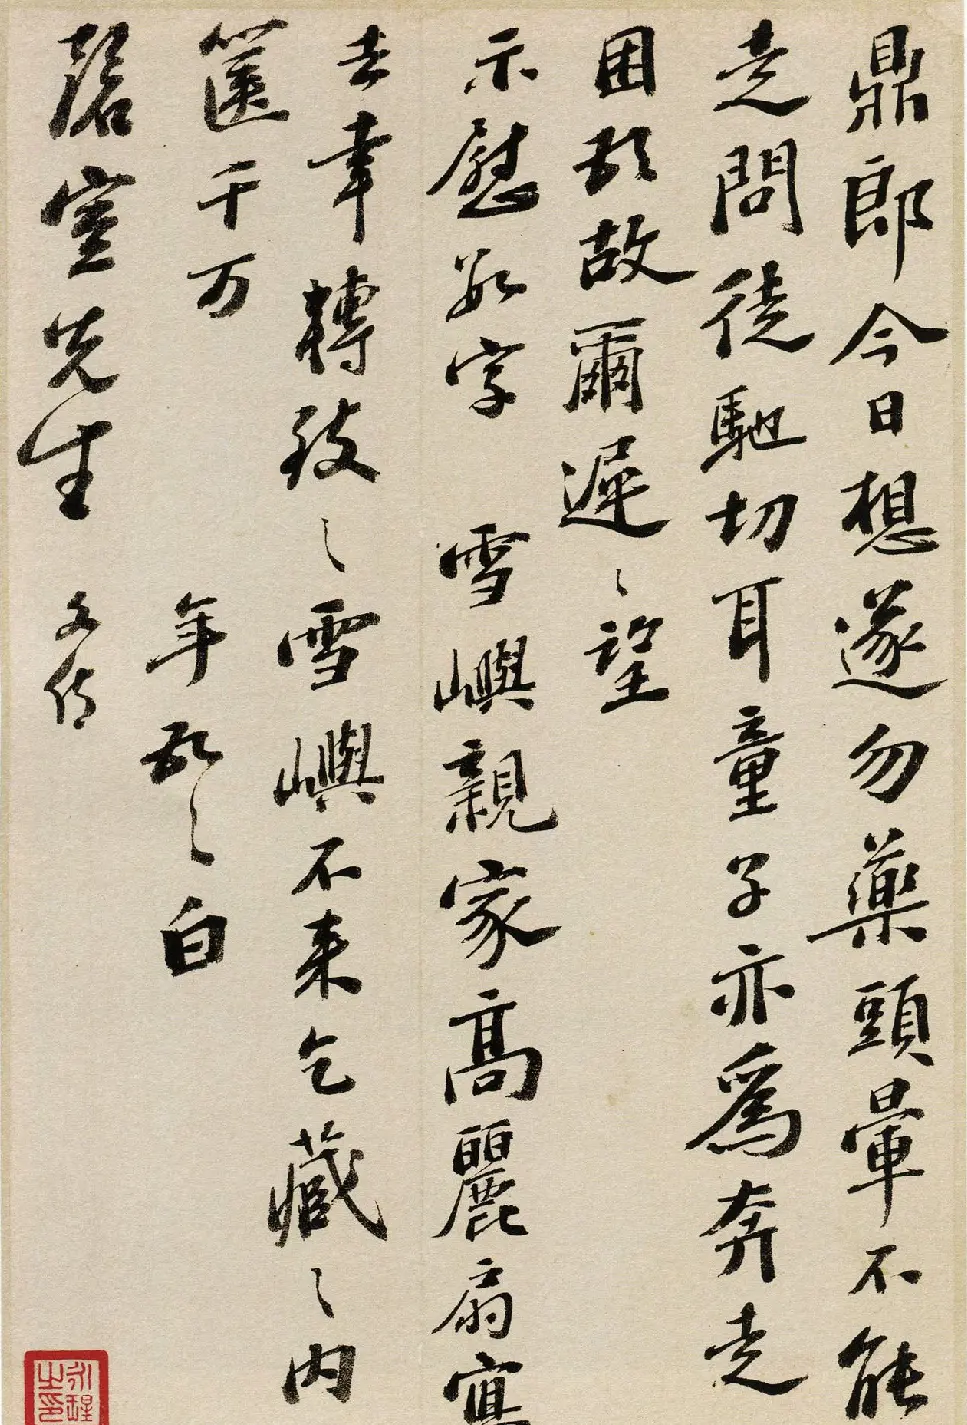 鼎郎今日想遂勿藥頭暈不能
走問徒馳切耳童子亦爲奔走
困頓故爾遲遲望
示慰數字 雪嶼親家高麗扇寫
去幸轉致之雪嶼不來乞藏之內
篋千万
年頓首白
磬室先生 文侍
永瑆之印